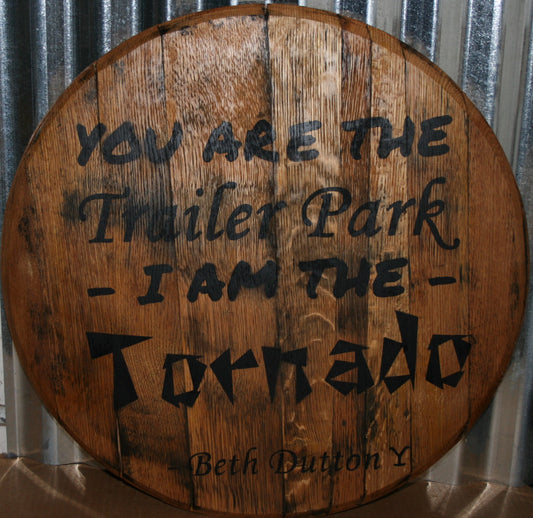 YOU ARE THE
Trailer Park
- I AM THE -
Tornado
- Beth Dutton Y